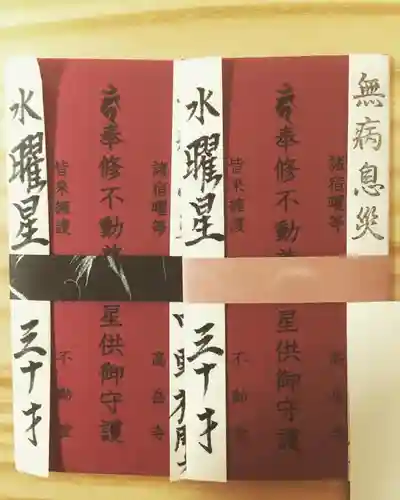 無病息災
諸宿曜等
奉修不動
星供御守護
皆来擁護
不動
水曜星
三十才
諸宿曜等
高岳寺
奉修不動
星供御守護
皆来擁護
不動
水曜星
三十才